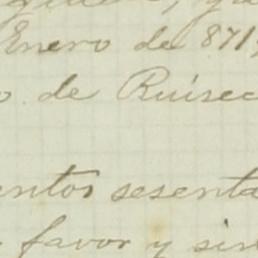 Enero de 871
o de Ruisec
entos sesenta
favor y sin